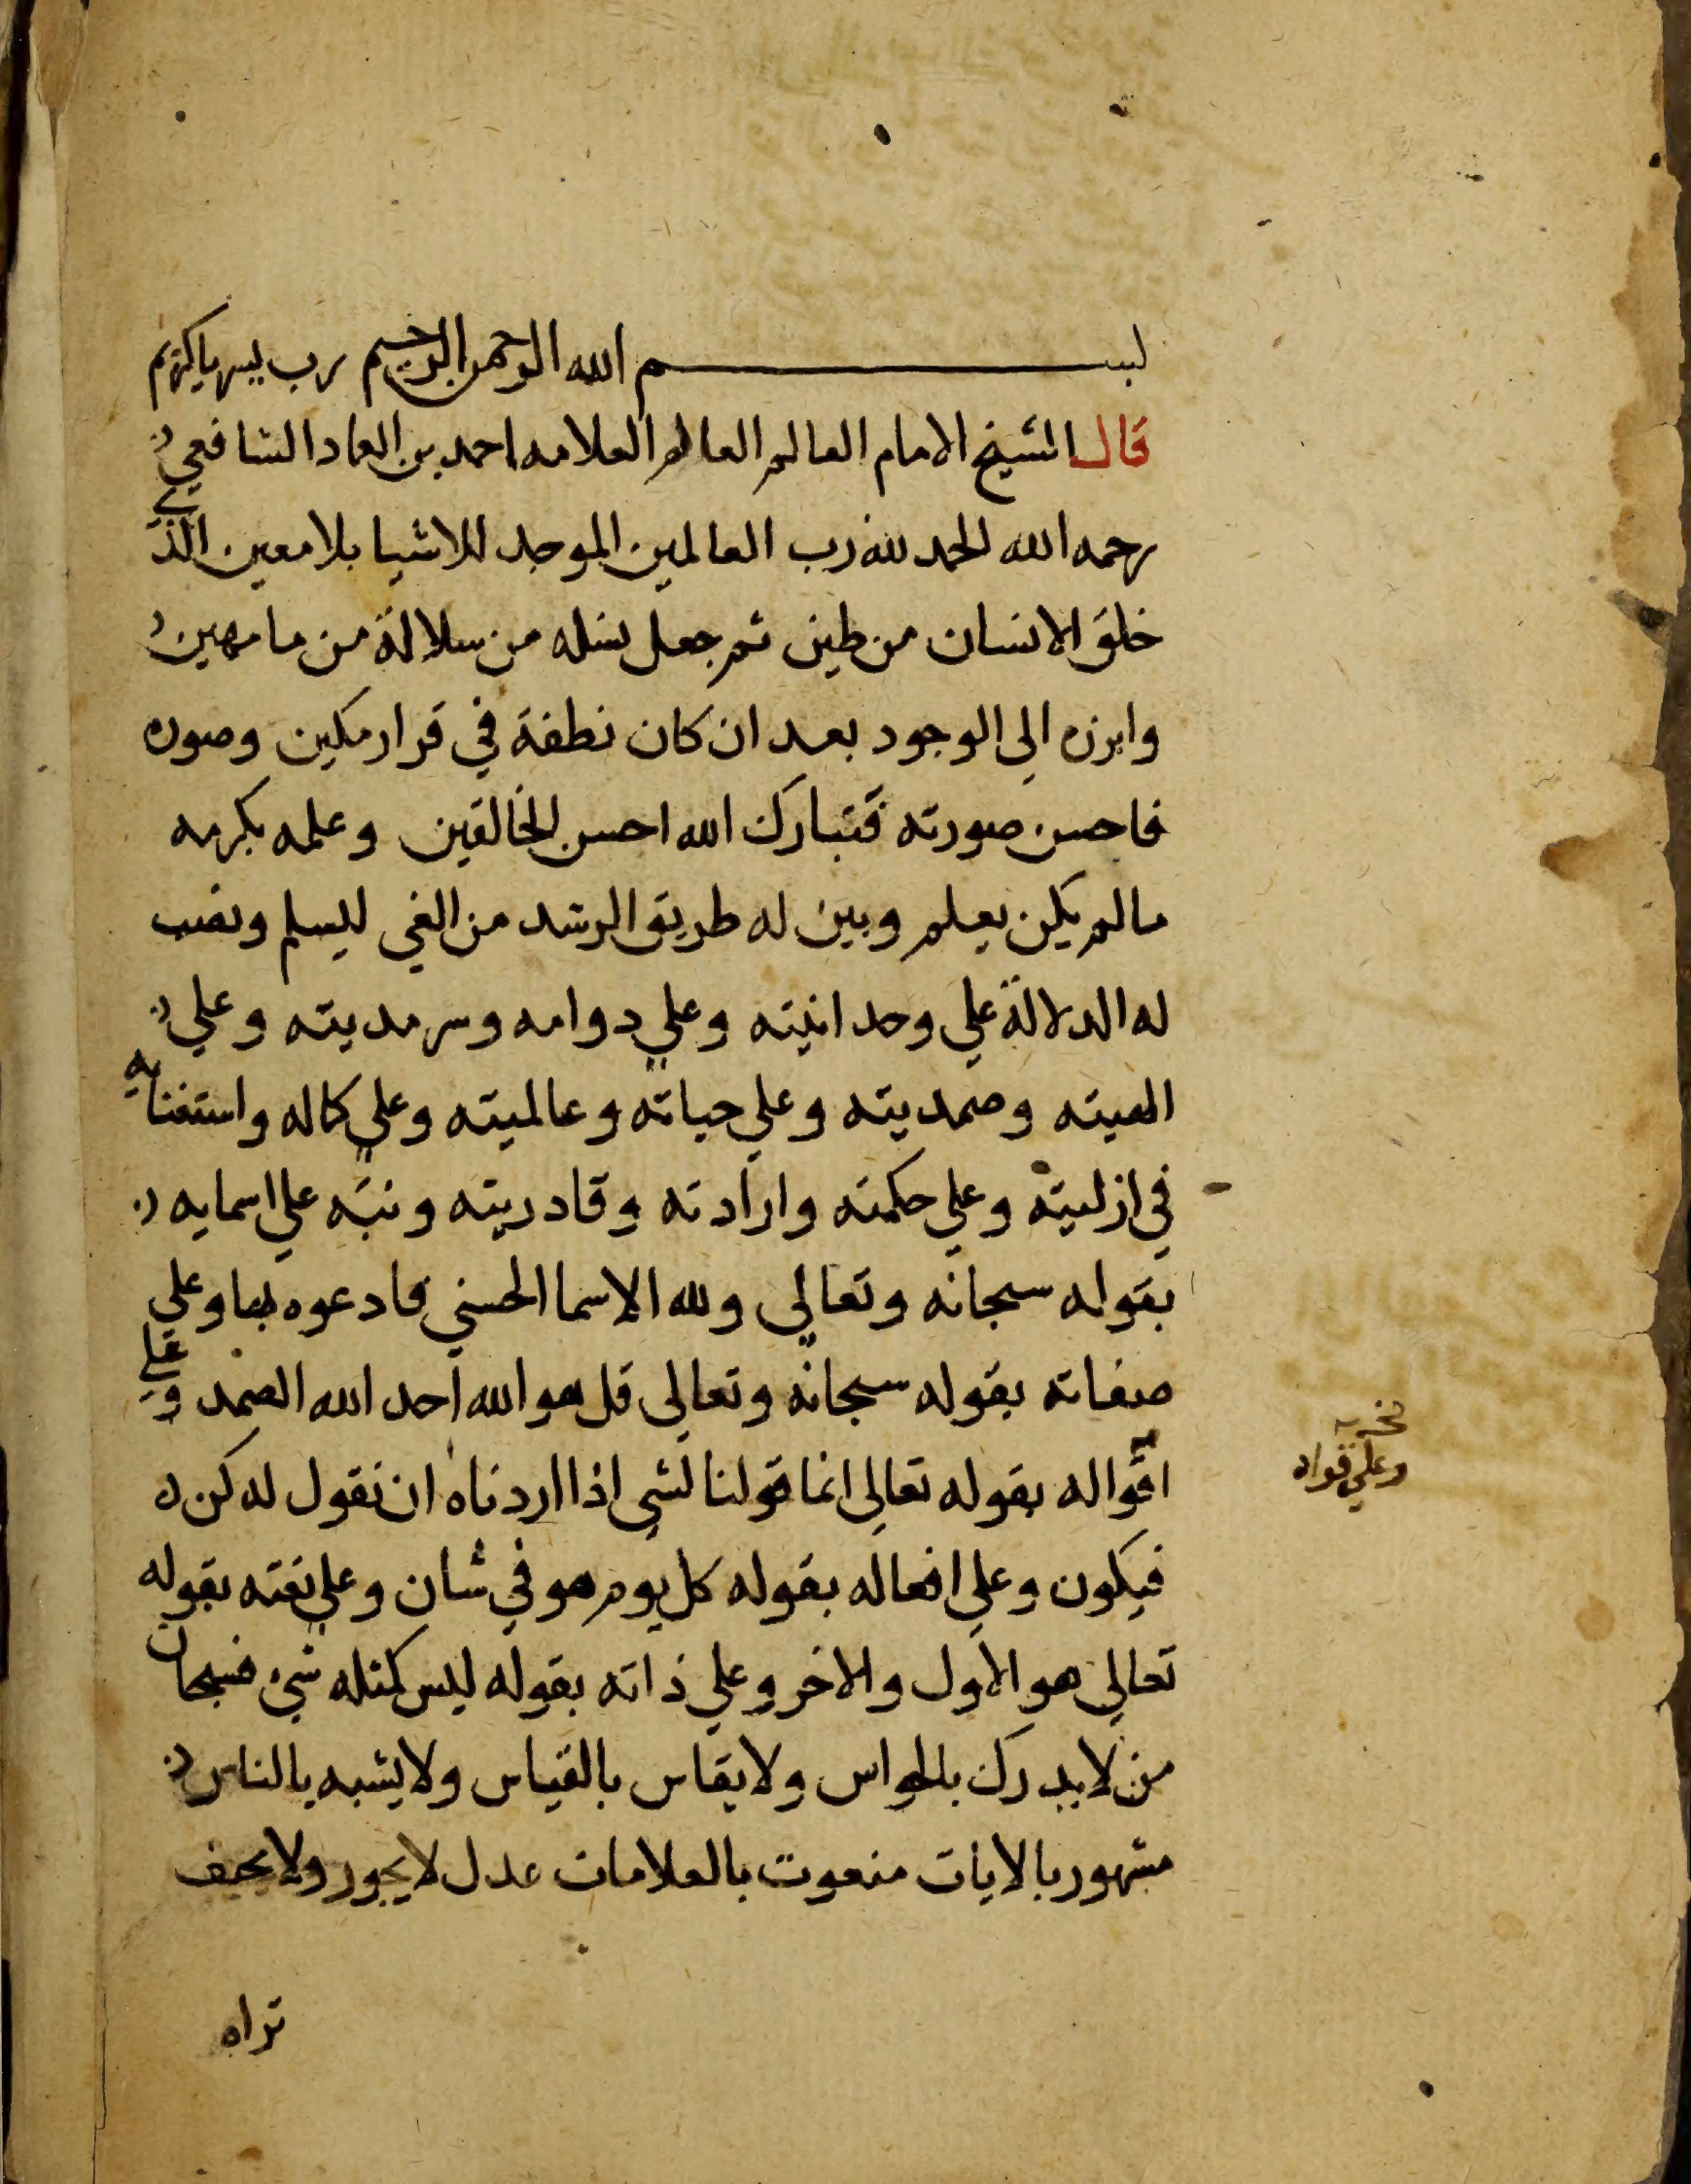 بسم الله الرحمن الرحيم رب يسر ياكريم
قال الشيخ الامام العالم العالم العلامه احمد بن العماد الشافعي
رحمه الله الحمد لله رب العالمين الموجد للاشيا بلا معين الذي
خلق الانسان من طين ثم جعل نسله من سلالة من ما مهين
وابرزه الي الوجود بعد ان كان نطفة في قرار مكين وصوره
فاحسن صورته فتبارك الله احسن الخالقين وعلمه بكرمه
مالم يكن يعلم وبين له طريق الرشد من الغي ليسلم ونصب
له الدلالة علي وحدانيته وعلي دوامه وسرمديته وعلي
الهيته وصمديته وعلي حياته وعالميته وعلي كماله واستغنايه
في ازليته وعلي حكمته وارادته وقادريته ونبه علي اسمايه
بقوله سبحانه وتعالي ولله الاسما الحسني فادعوه بها وعلي
صفاته بقوله سبحانه وتعالي قل هو الله احد الله الصمد وعلي
اقواله بقوله تعالي انما قولنا لشي اذا اردناه ان نقول له كن
فيكون وعلي افعاله بقوله كل يوم هو في شان وعلي نعته بقوله
تعالي هو الاول والاخر وعلي ذاته بقوله ليس كمثله شي فسبحان
من لا يدرك بالحواس ولا يقاس بالقياس ولا يشبه بالناس
مشهور بالايات منعوت بالعلامات عدل لا يجور ولا يحيف
تراه
وعلي